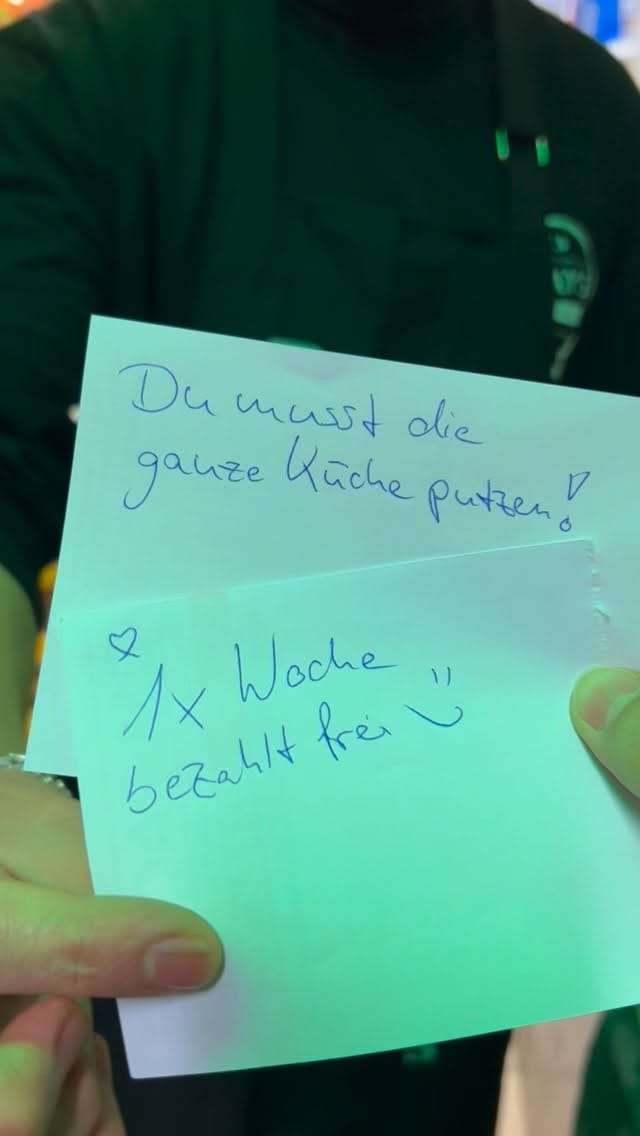 Du musst die
ganze Küche putzen!
♡
1x Woche
bezahlt frei :)